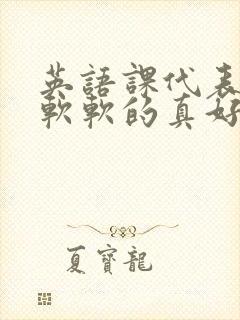 英語課代表
軟軟的真好
夏寶龍